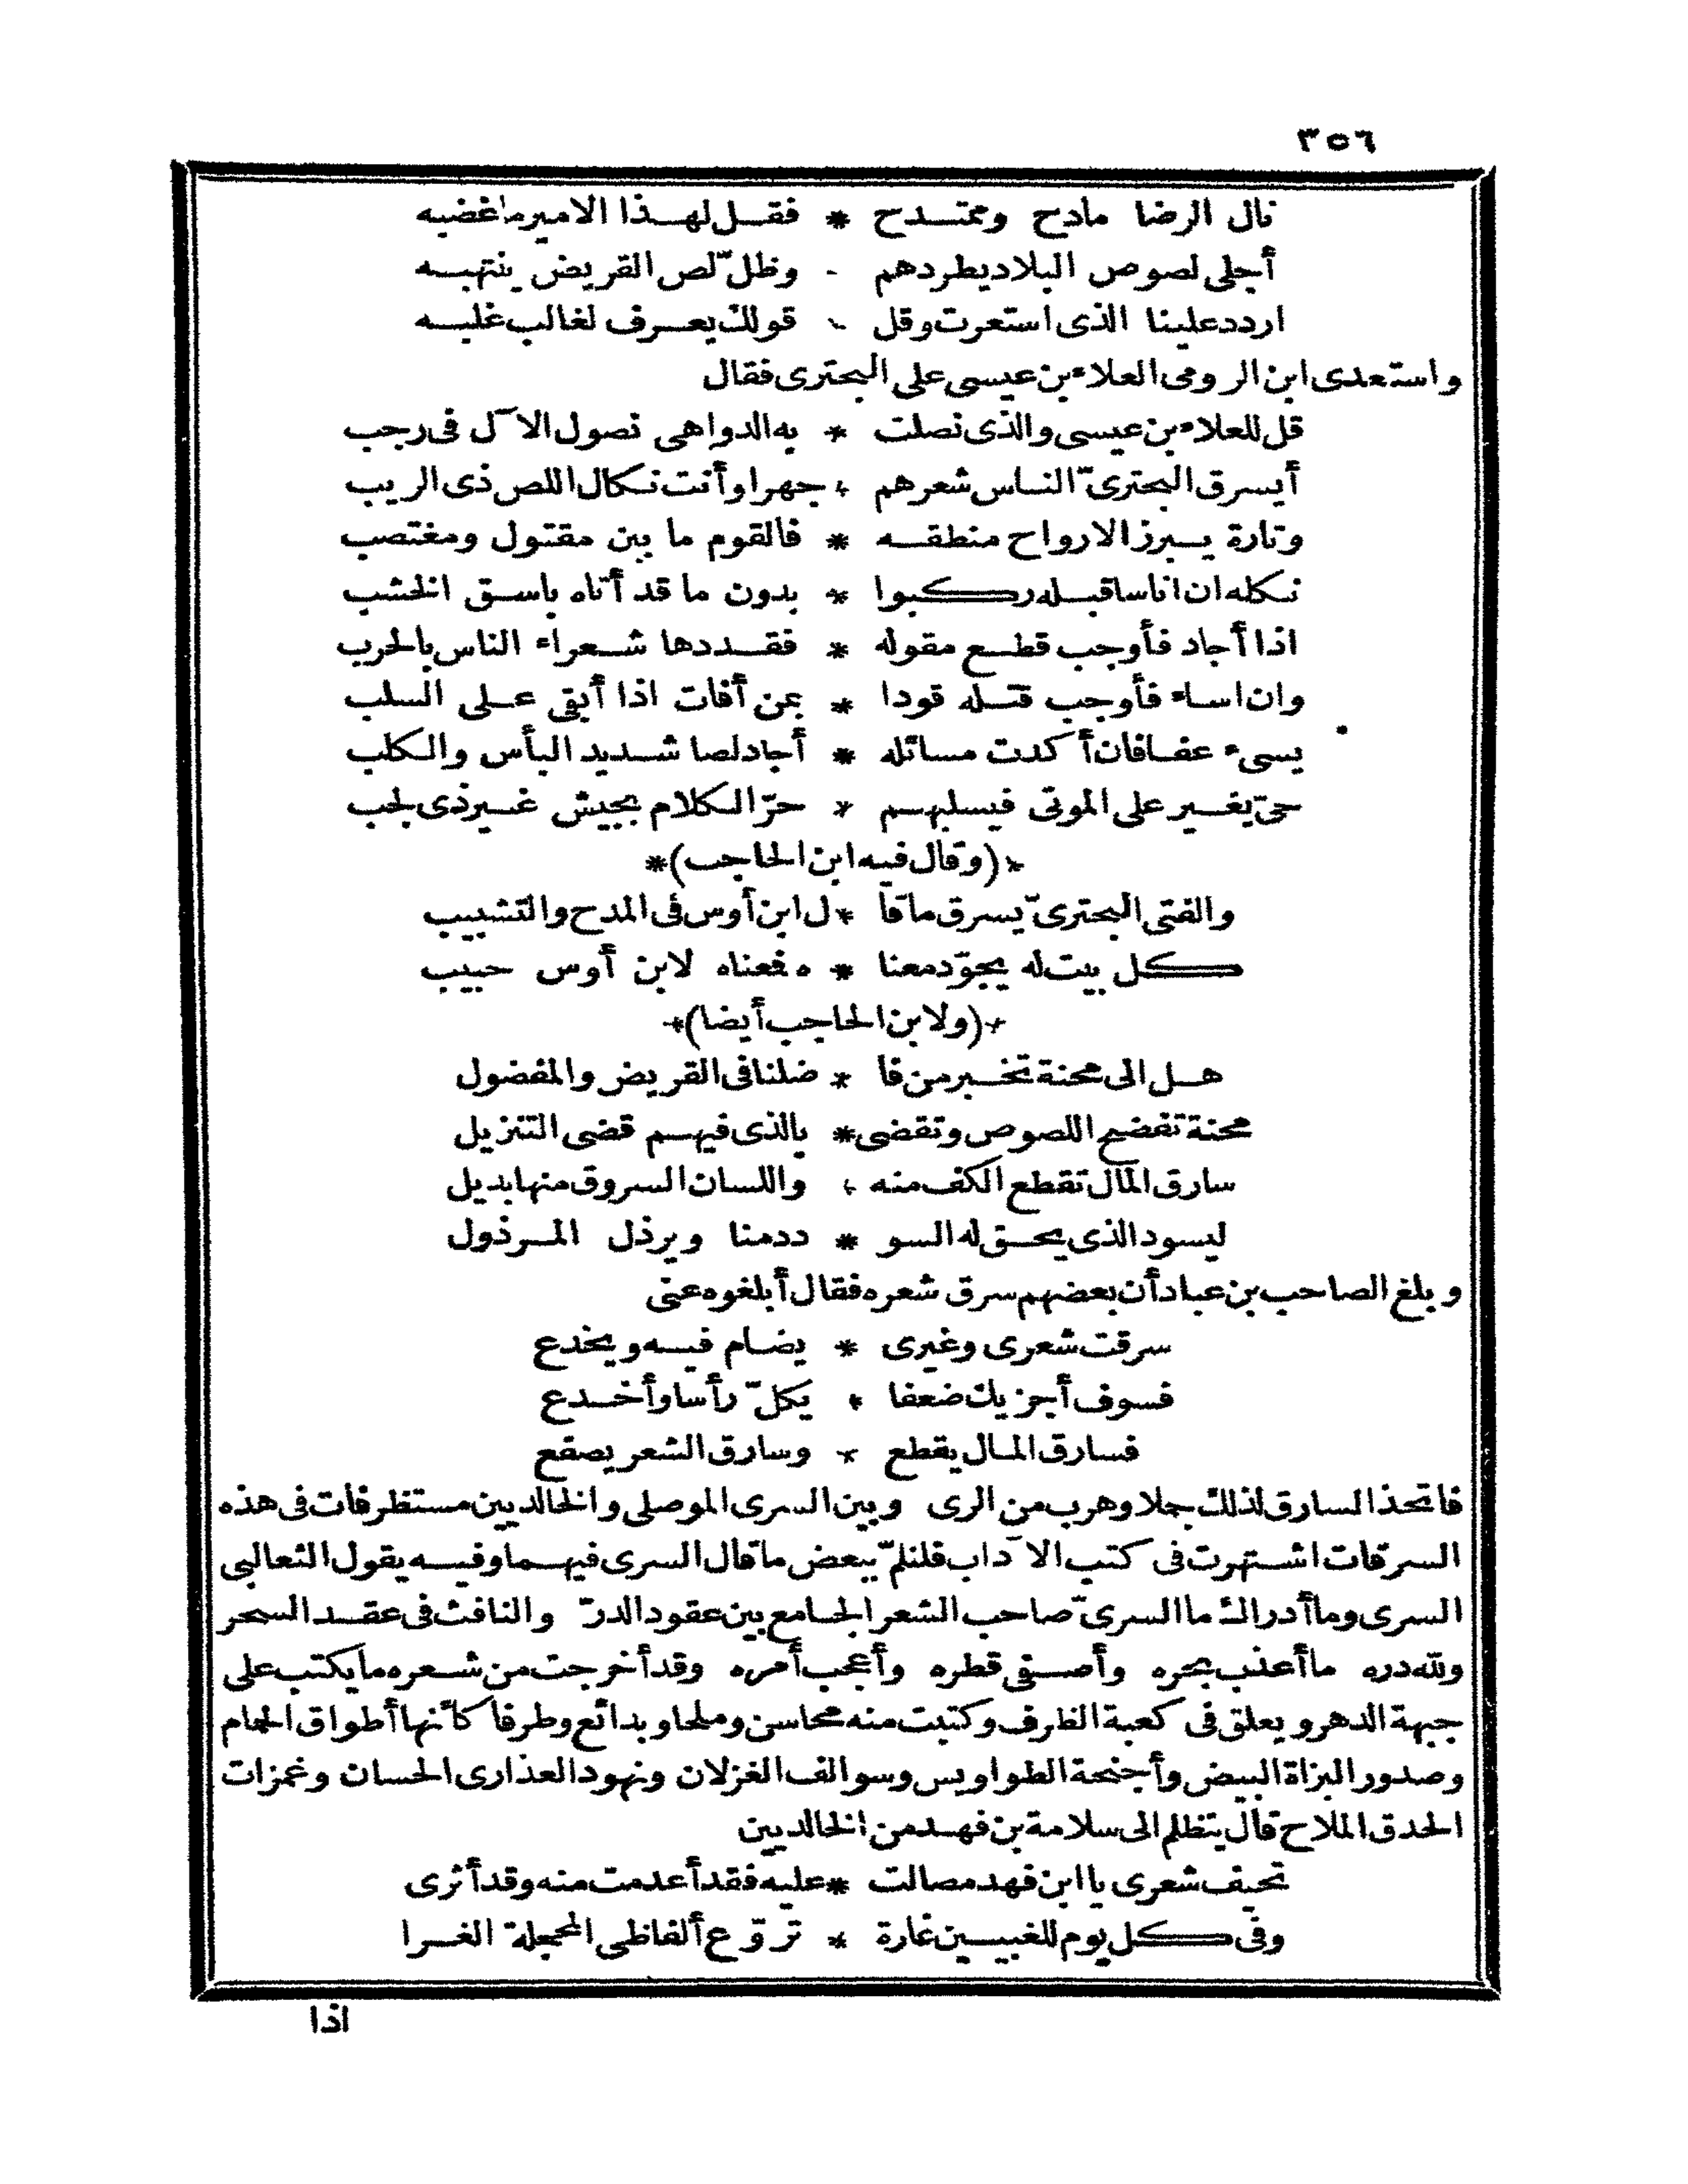 ٣٥٦
نال الرضا مادح وممتدح * فقل لهذا الامير ماغضبه
أجلى لصوص البلاد يطردهم - وظلّ لص القريض ينتهبه
اردد علينا الذى استعرت وقل - قولك يعرف لغالب غلبه
واستعدى ابن الرومى العلاء بن عيسى على البحترى فقال
قل للعلاء بن عيسى والذى نصلت * به الدواهى نصول الآل فى رجب
أيسرق البحترىّ الناس شعرهم * جهرا وأنت نكال اللص ذى الريب
وتارة يبرز الارواح منطقه * فالقوم ما بين مقتول ومغتصب
نكله ان اناسا قبله ركبوا * بدون ما قد أتاه باسق الخشب
اذا أجاد فأوجب قطع مقوله * فقددها شعراء الناس بالحرب
وان اساء فأوجب قتله قودا * بمن أفات اذا أبقى على السلب
يسىء عفا فان أكدت مسائله * أجاد لصا شديد البأس والكلب
حتى يغير على الموتى فيسلبهم * حرّ الكلام بجيش غير ذى لجب
*(وقال فيه ابن الحاجب)*
والفتى البحترىّ يسرق ما قا * ل ابن أوس فى المدح والتشبيب
كل بيت له يجوّد معنا * ه فمعناه لابن أوس حبيب
*(ولابن الحاجب أيضا)*
هل الى محنة تخبر من فا * ضلنا فى القريض والمفضول
محنة تفضح اللصوص وتقضى * بالذى فيهم قضى التنزيل
سارق المال تقطع الكف منه * واللسان السروق منها بديل
ليسود الذى يحق له السو * ددمنا ويرذل المرذول
وبلغ الصاحب بن عباد أن بعضهم سرق شعره فقال أبلغوه عنى
سرقت شعرى وغيرى * يضام فيه ويخدع
فسوف أجزيك ضعفا * يكلّ رأسا وأخدع
فسارق المال يقطع * وسارق الشعر يصفع
فاتخذ السارق لذلك جملا وهرب من الرى وبين السرى الموصلى والخالديين مستظرفات فى هذه
السرقات اشتهرت فى كتب الآداب فلنلمّ ببعض ما قال السرى فيهما وفيه يقول الثعالبى
السرى وما أدراك ما السرىّ صاحب الشعر الجامع بين عقود الدرّ والنافث فى عقد السحر
ولله دره ما أعذب بحره وأصفى قطره وأعجب أمره وقد أخرجت من شعره ما يكتب على
جبهة الدهر ويعلق فى كعبة الظرف وكتبت منه محاسن وملحا وبدائع وطرفا كأنها أطواق الحمام
وصدور البزاة البيض وأجنحة الطواويس وسوالف الغزلان ونهود العذارى الحسان وغمزات
الحدق الملاح قال يتظلم الى سلامة بن فهد من الخالديين
تحيف شعرى يا ابن فهد مصالت * عليه فقد أعدمت منه وقد أثرى
وفى كل يوم للغبيين غارة * تروّع ألفاظى المحجلة الغرا
اذا